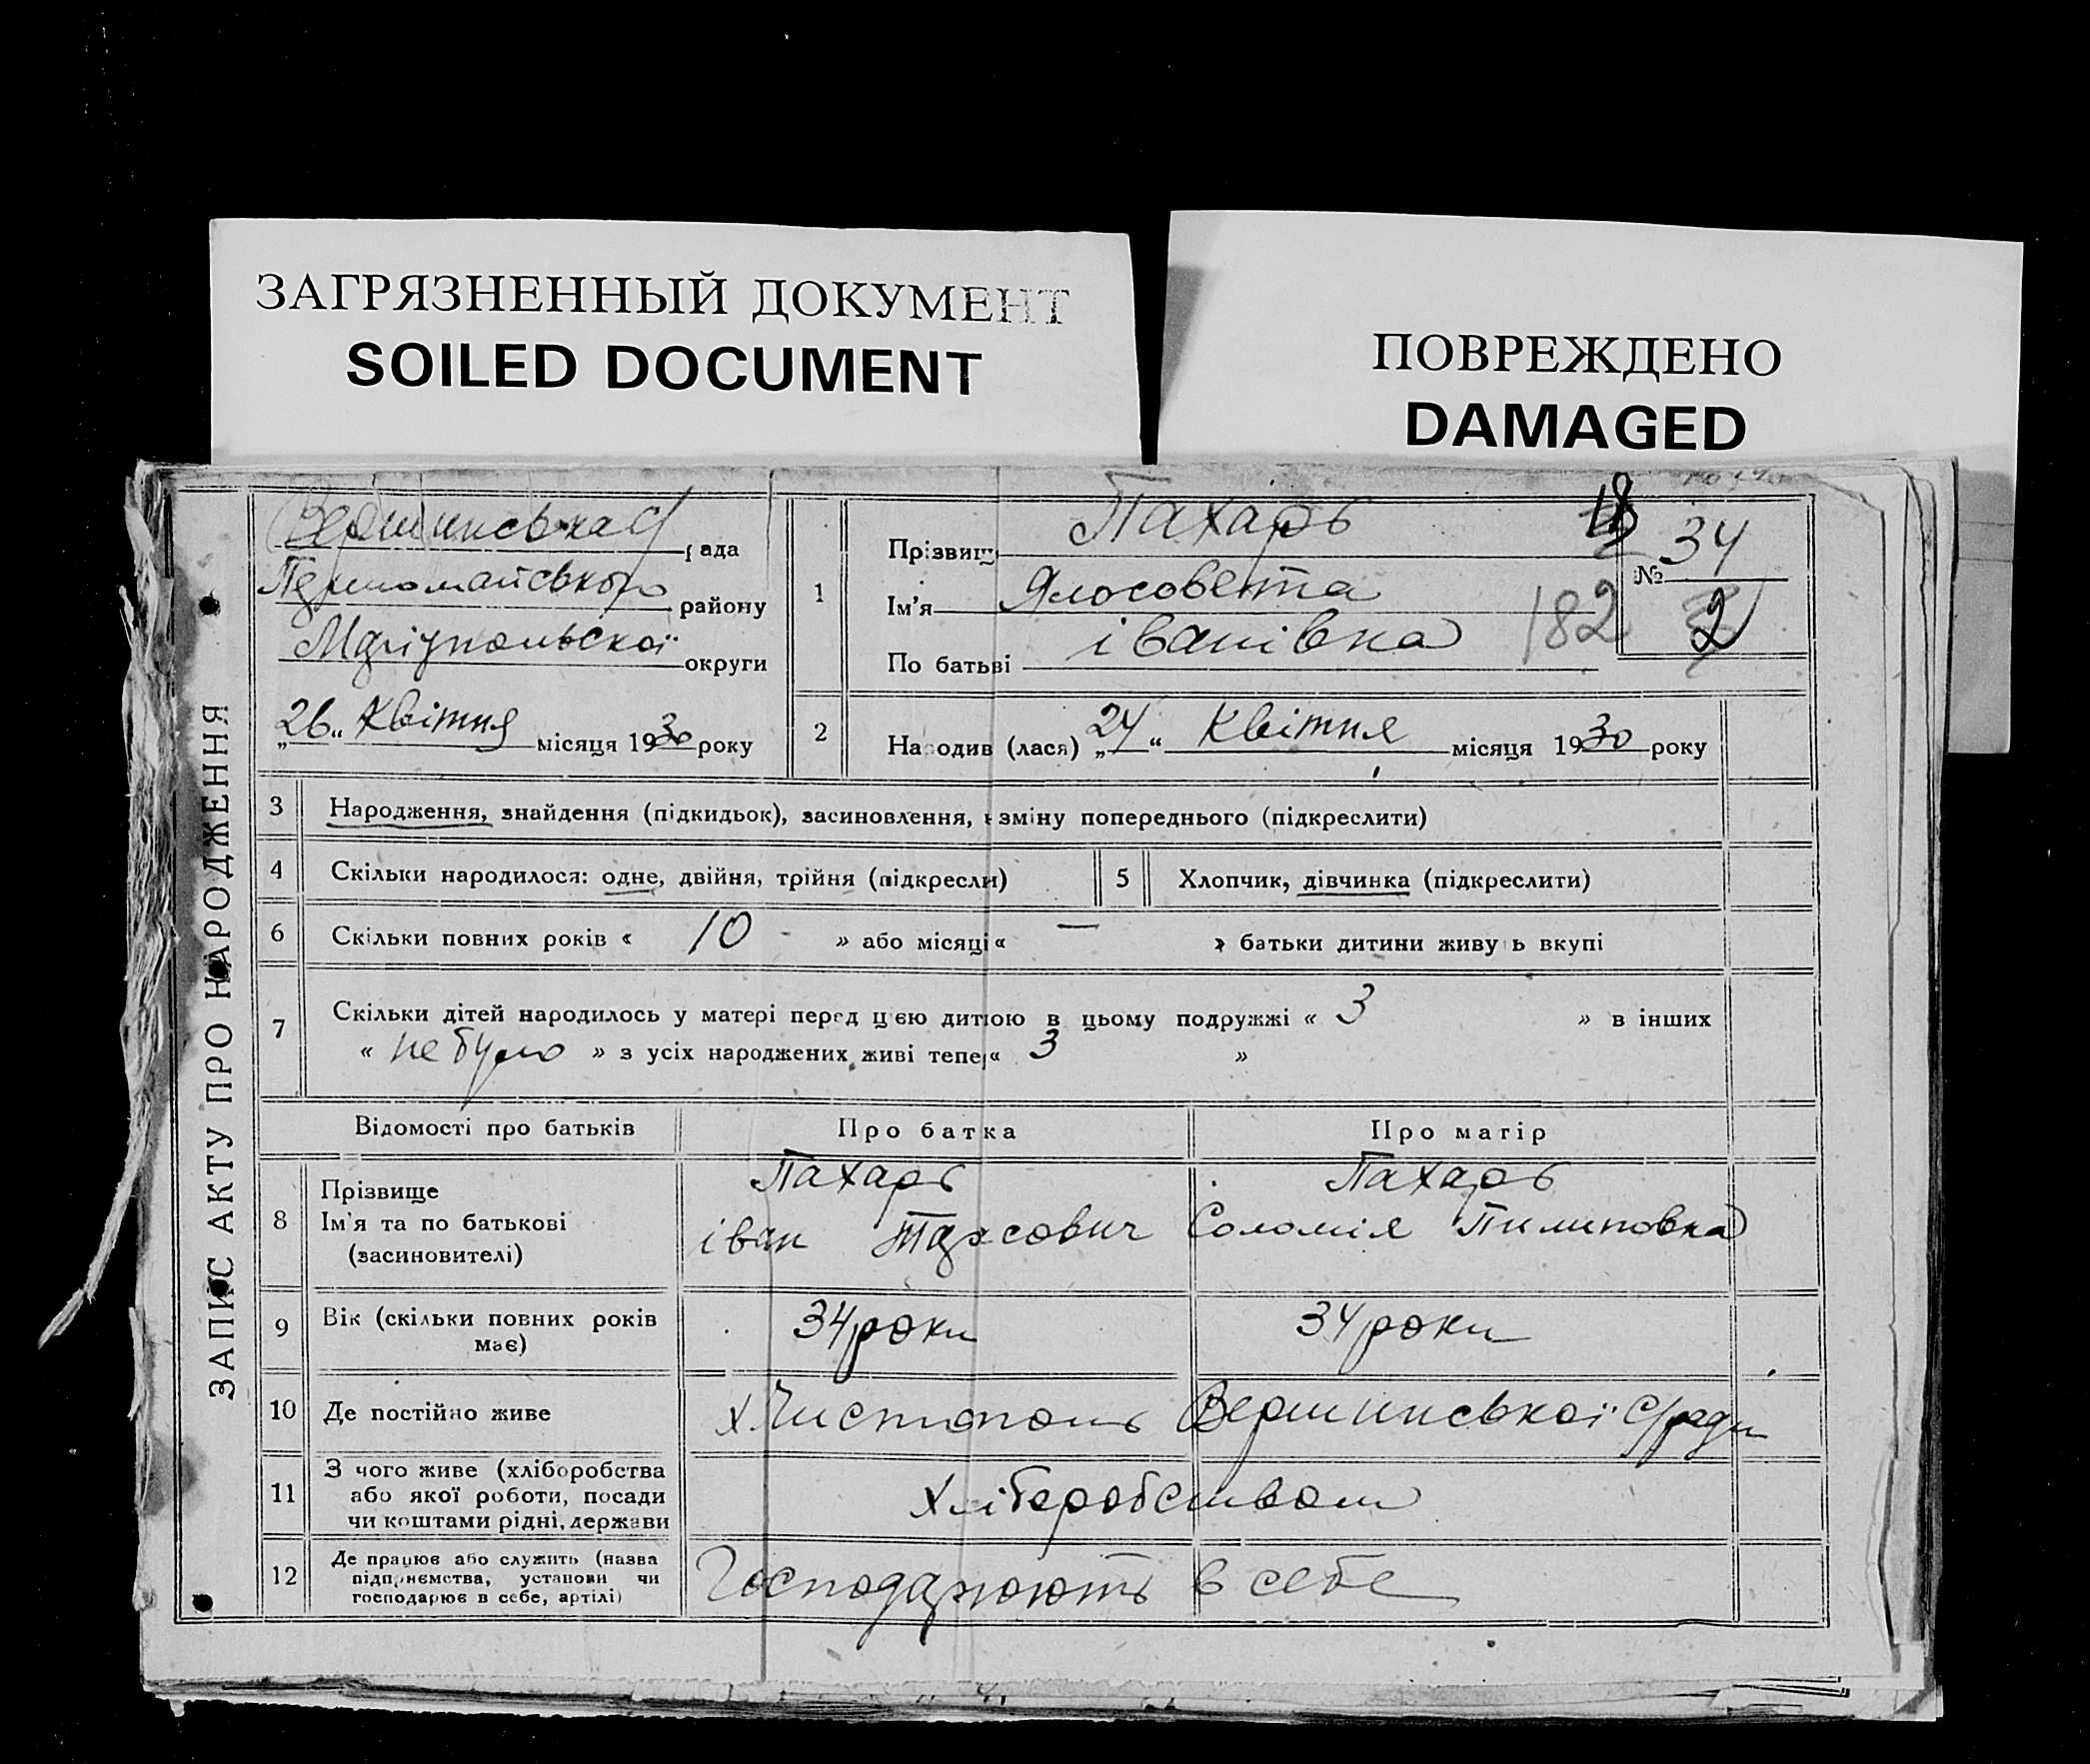 ЗАГРЯЗНЕННЫЙ ДОКУМЕНТ
SOILED DOCUMENT
ПОВРЕЖДЕНО
DAMAGED
ЗАПИС АКТУ ПРО НАРОДЖЕННЯ
Вершинська с/рада
Першомайського району
Маріупольскої округи
„26“ Квітня місяця 1930 року
1
Прізвищ Пахарь
Ім'я Ялосовета
По батьві іванівка
18
182
№ 34
2
2
Народив (лася) „24“ Квітня місяця 1930 року
3 Народження, знайдення (підкидьок), засиновлення, зміну попереднього (підкреслити)
4 Скільки народилося: одне, двійня, трійня (підкресли)
5 Хлопчик, дівчинка (підкреслити)
6 Скільки повних років « 10 » або місяці « — » батьки дитини живу ь вкупі
7 Скільки дітей народилось у матері перед цією дитиою в цьому подружжі « 3 » в інших
« не було » з усіх народжених живі тепе « 3 »
Відомості про батьків Про батка Про матір
8 Прізвище Пахарь Пахарь
Ім'я та по батькові іван Тарасович Соломія Пилиповка
(засиновителі)
9 Вік (скільки повних років 34 роки 34 роки
має)
10 Де постійно живе х. Чистополь Вершинської с/ради
11 З чого живе (хліборобства
або якої роботи, посади Хліборобством
чи коштами рідні, держави
12 Де працює або служить (назва
підприємства, установи чи Господарюють в себе
господарює в себе, артілі)